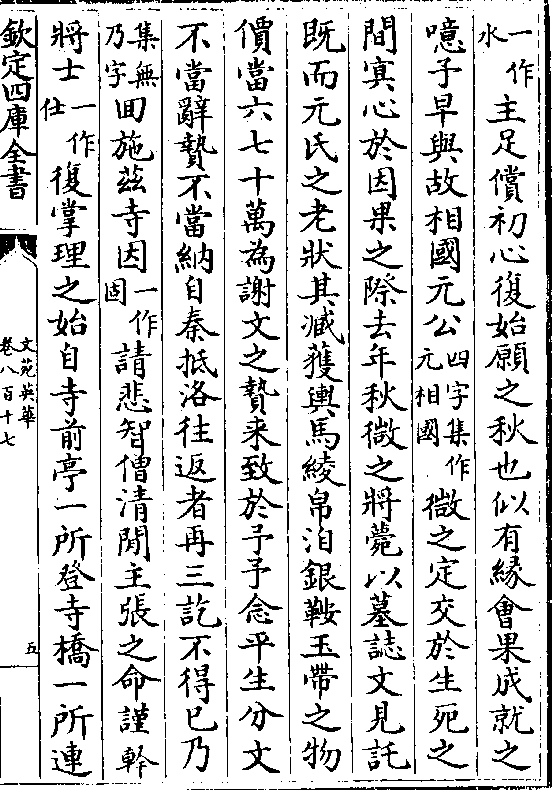 一作水主足償初心復始願之秋也似有緣會果成就之
噫子早與故相國元公四字集作元相國微之定交於生死之
間寘心於因果之際去年秋微之將薨以墓誌文見託
既而元氏之老狀其臧獲輿馬綾帛洎銀鞍玉帶之物
價當六七十萬為謝文之贄来致於予予念平生分文
不當辭贄不當納自秦抵洛往返者再三訖不得已乃
集無乃字回施兹寺因一作固請悲智僧清閒主張之命謹幹
將士一作仕復掌理之始自寺前亭一所登寺橋一所連
欽定四庫全書
文苑英華
卷八百十七
五